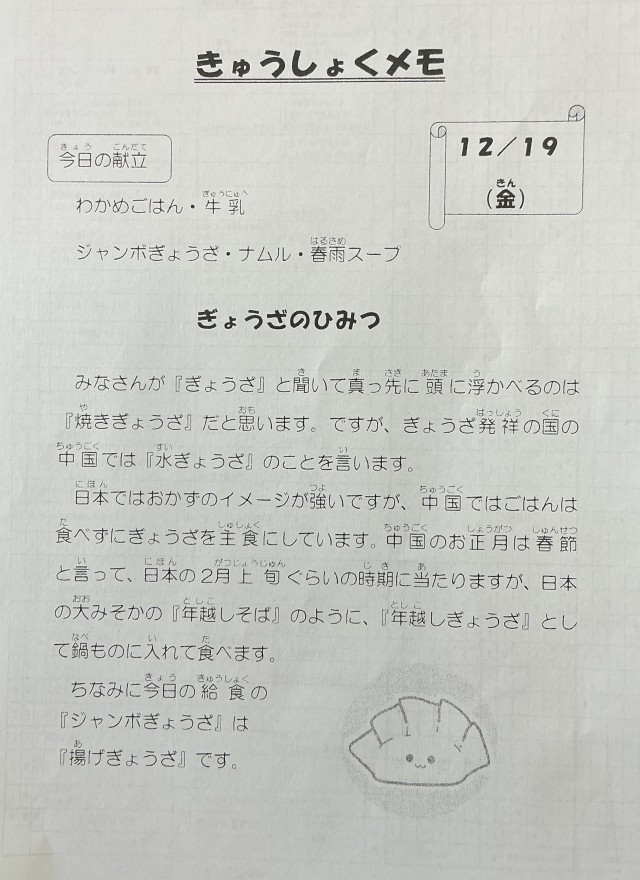 きゅうしょくメモ
今日の献立
12/19
(金)
わかめごはん・牛乳
ジャンボぎょうざ・ナムル・春雨スープ
ぎょうざのひみつ
みなさんが『ぎょうざ』と聞いて真っ先に頭に浮かべるのは
『焼きぎょうざ』だと思います。ですが、ぎょうざ発祥の国の
中国では『水ぎょうざ』のことを言います。
日本ではおかずのイメージが強いですが、中国ではごはんは
食べずにぎょうざを主食にしています。中国のお正月は春節
と言って、日本の2月上旬ぐらいの時期に当たりますが、日本
の大みそかの『年越しそば』のように、『年越しぎょうざ』とし
て鍋ものに入れて食べます。
ちなみに今日の給食の
『ジャンボぎょうざ』は
『揚げぎょうざ』です。